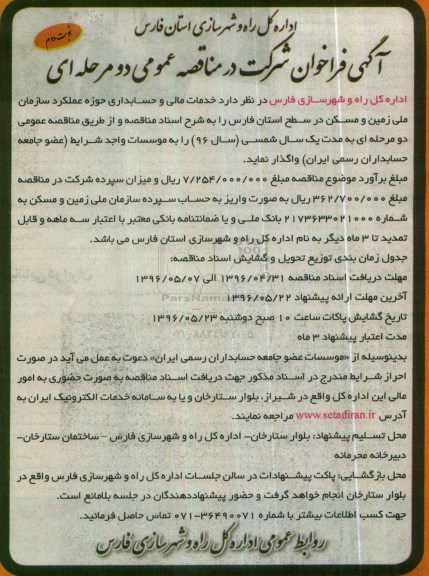 اداره کل راه و شهرسازی استان فارس
نوبت دوم
آگهی فراخوان شرکت در مناقصه عمومی دو مرحله ای
اداره کل راه و شهرسازی فارس در نظر دارد خدمات مالی و حسابداری حوزه عملکرد سازمان
ملی زمین و مسکن در سطح استان فارس را به شرح اسناد مناقصه و از طریق مناقصه عمومی
دو مرحله ای به مدت یک سال شمسی (سال ۹۶) را به موسسات واجد شرایط (عضو جامعه
حسابداران رسمی ایران) واگذار نماید.
مبلغ برآورد موضوع مناقصه مبلغ ۷/۲۵۴/۰۰۰/۰۰۰ ریال و میزان سپرده شرکت در مناقصه
مبلغ ۳۶۲/۷۰۰/۰۰۰ ریال به صورت واریز به حساب سپرده سازمان ملی زمین و مسکن به
شماره ۲۱۷۳۶۳۳۰۲۱۰۰۰ بانک ملی و یا ضمانتنامه بانکی معتبر با اعتبار سه ماهه و قابل
تمدید تا ۳ ماه دیگر به نام اداره کل راه و شهرسازی استان فارس می باشد.
جدول زمان بندی توزیع تحویل و گشایش اسناد مناقصه:
مهلت دریافت اسناد مناقصه ۱۳۹۶/۰۴/۳۱ الی ۱۳۹۶/۰۵/۰۷
آخرین مهلت ارائه پیشنهاد ۱۳۹۶/۰۵/۲۲
تاریخ گشایش پاکات ساعت ۱۰ صبح دوشنبه ۱۳۹۶/۰۵/۲۳
مدت اعتبار پیشنهاد ۳ ماه
بدینوسیله از «موسسات عضو جامعه حسابداران رسمی ایران» دعوت به عمل می آید در صورت
احراز شرایط مندرج در اسناد مذکور جهت دریافت اسناد مناقصه به صورت حضوری به امور
مالی این اداره کل واقع در شیراز، بلوار ستارخان و یا به سامانه خدمات الکترونیک ایران به
آدرس www.setadiran.ir مراجعه نمایند.
محل تسلیم پیشنهاد: بلوار ستارخان- اداره کل راه و شهرسازی فارس – ساختمان ستارخان-
دبیرخانه محرمانه
محل بازگشایی: پاکت پیشنهادات در سالن جلسات اداره کل راه و شهرسازی فارس واقع در
بلوار ستارخان انجام خواهد گرفت و حضور پیشنهاددهندگان در جلسه بلامانع است.
جهت کسب اطلاعات بیشتر با شماره ۳۶۴۹۰۰۷۱-۰۷۱ تماس حاصل فرمائید.
روابط عمومی اداره کل راه و شهرسازی فارس